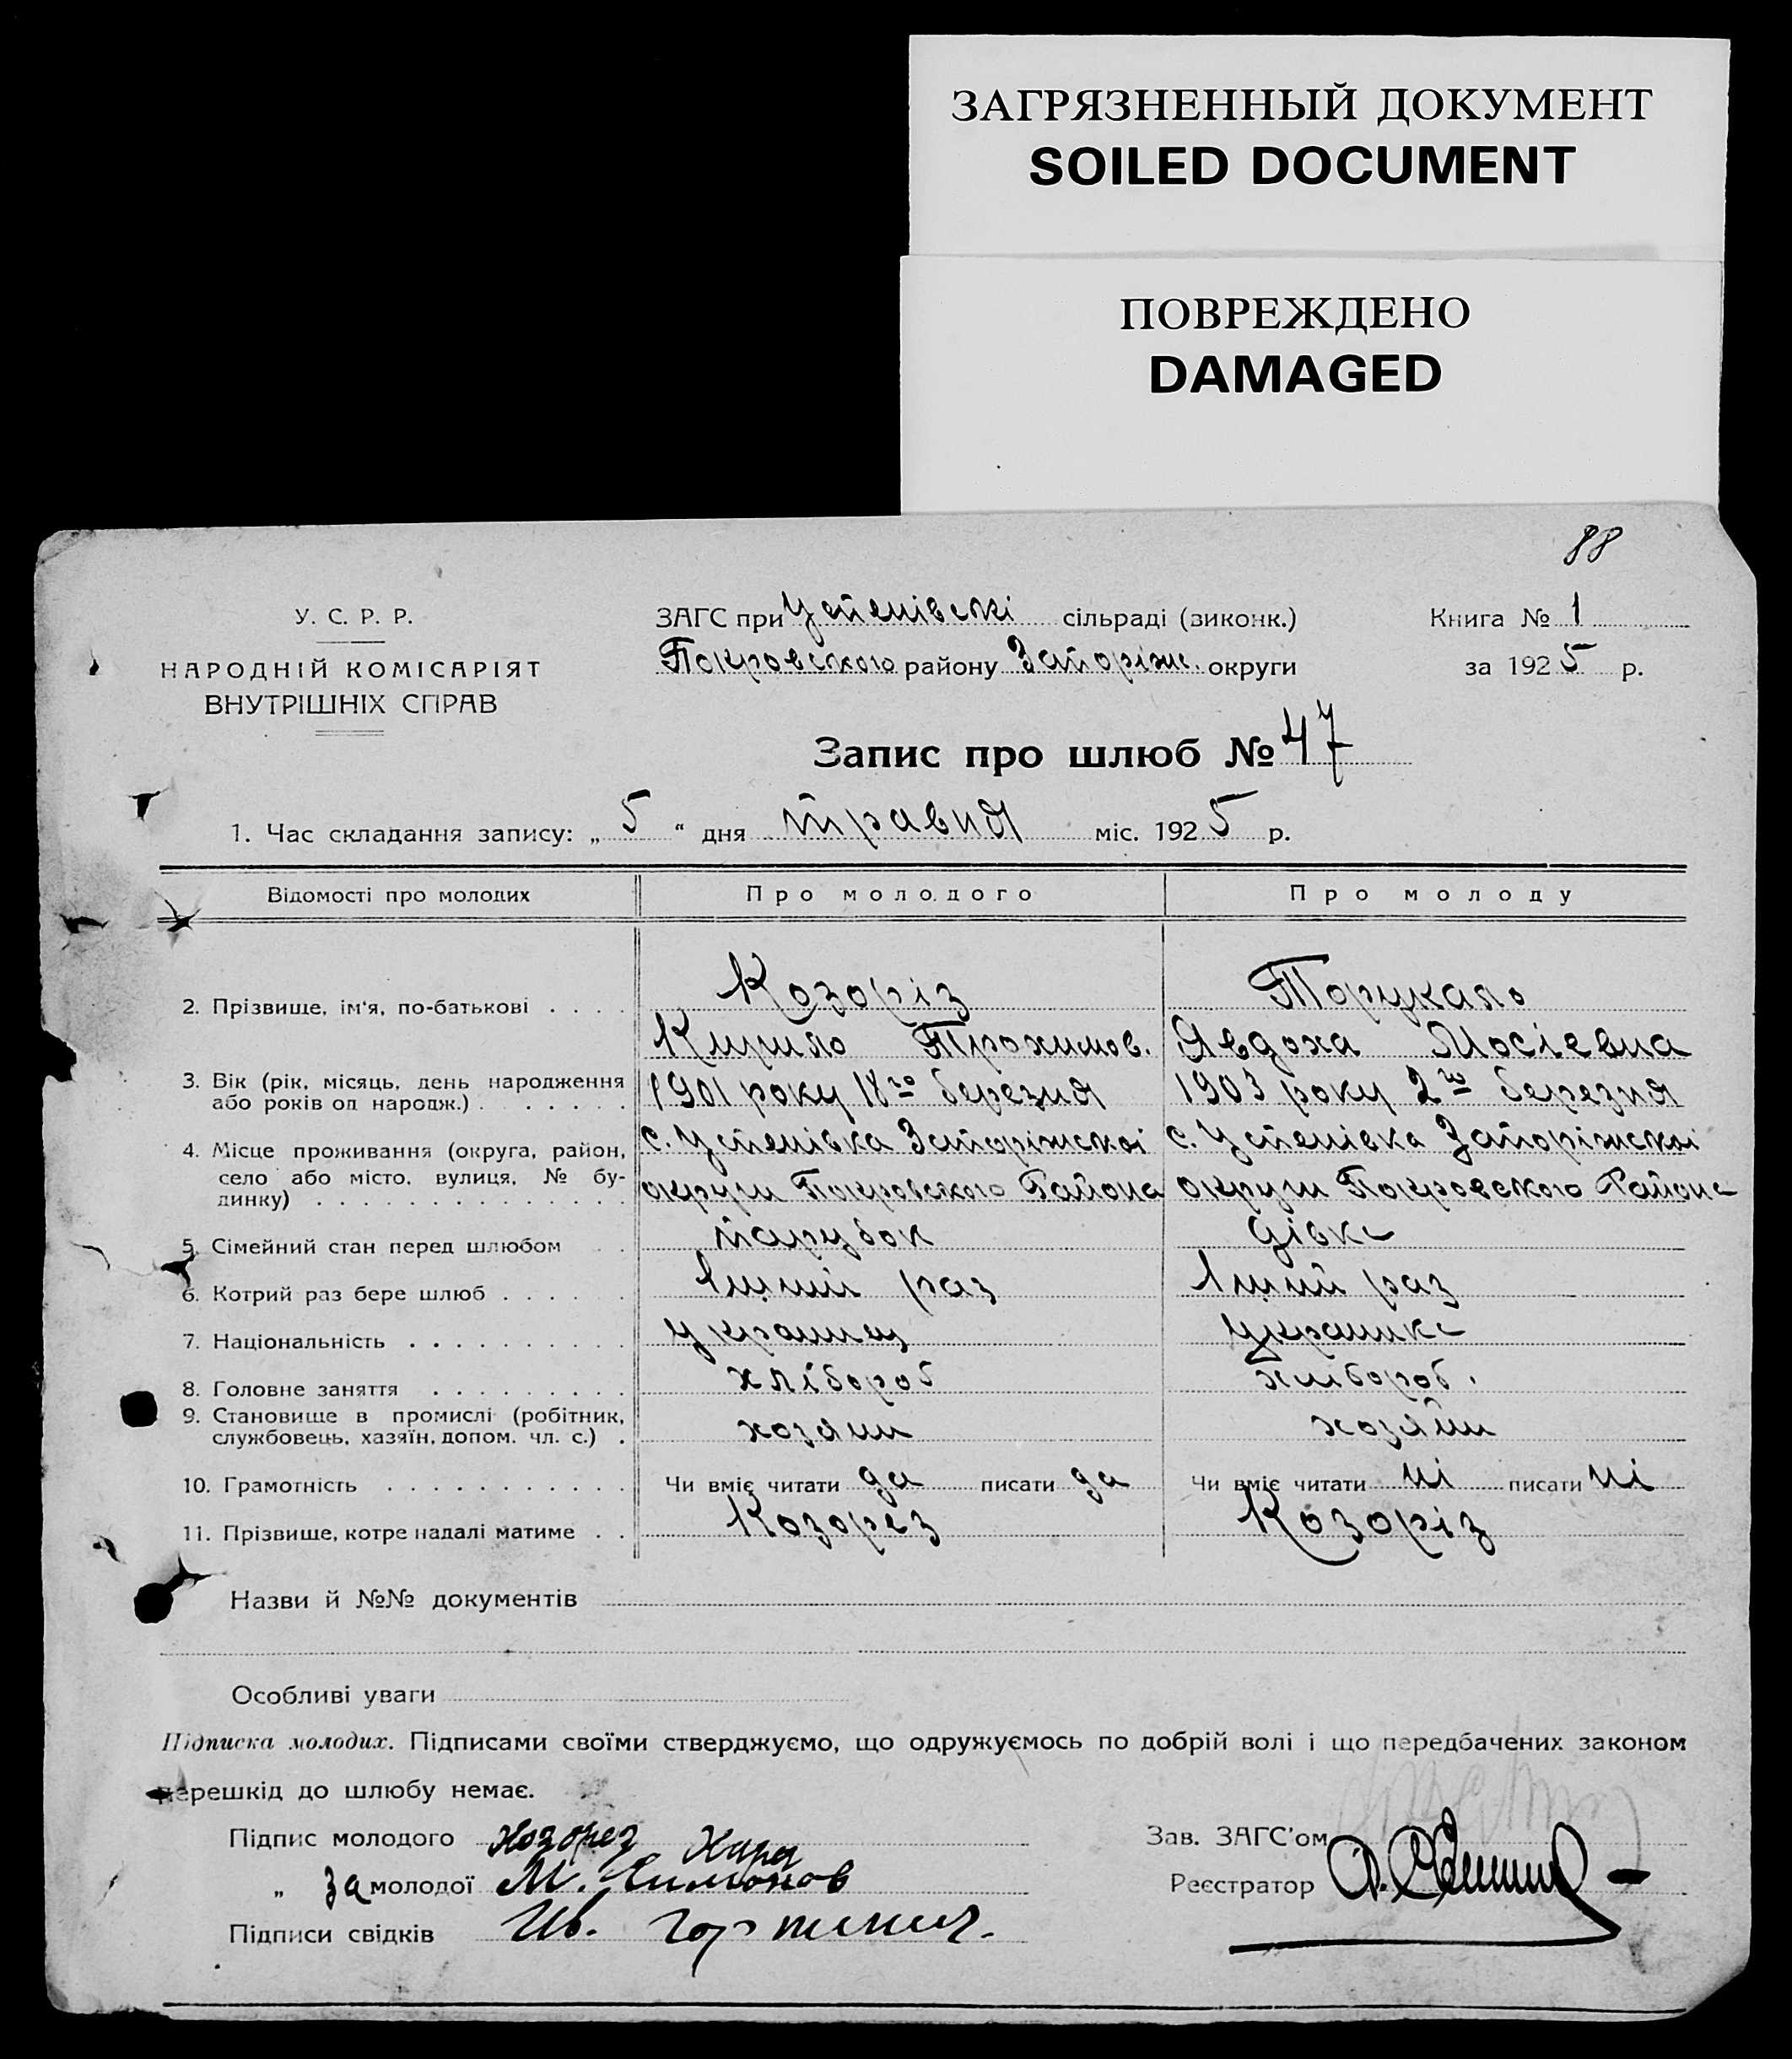 ЗАГРЯЗНЕННЫЙ ДОКУМЕНТ
SOILED DOCUMENT
ПОВРЕЖДЕНО
DAMAGED
88
У. С. Р. Р.
НАРОДНІЙ КОМІСАРІЯТ
ВНУТРІШНІХ СПРАВ
ЗАГС при Успенівскі сільраді (виконк.)
Покровского району Запоріжс. округи
Книга № 1
за 1925 р.
Запис про шлюб № 47
1. Час складання запису: „ 5 “ дня травня міс. 1925 р.
Відомості про молодих Про молодого Про молоду
2. Прізвище, ім'я, по-батькові . . . . Козоріз
Торукало
Кирило Трохимов. Явдоха Мосіевна
3. Вік (рік, місяць, день народження або років од народж.) . . . . . . 1901 року 18го березня 1903 року 2го березня
4. Місце проживання (округа, район, село або місто, вулиця, № будинку) . . . . . . . . . . . .
с. Успенівка Запоріжскоі с. Успенівка Запоріжскоі
округи Покровского Района округи Покровского Района
5. Сімейний стан перед шлюбом . . парубок дівка
6. Котрий раз бере шлюб . . . . . . 1ший раз 1ший раз
7. Національність . . . . . . . . . . украинец украинка
8. Головне заняття . . . . . . . . . хлібороб хлібороб.
9. Становище в промислі (робітник, службовець, хазяїн, допом. чл. с.) . хозяин хозяйн
10. Грамотність . . . . . . . . . . . Чи вміє читати да писати да Чи вміє читати ні писати ні
11. Прізвище, котре надалі матиме . . Козорез Козоріз
Назви й №№ документів
Особливі уваги
Підписка молодих. Підписами своїми стверджуємо, що одружуємось по добрій волі і що передбачених законом
перешкід до шлюбу немає.
Підпис молодого Козорез
Зав. ЗАГС'ом
„ За молодої М. Симонов
Реєстратор
Підписи свідків Ив.